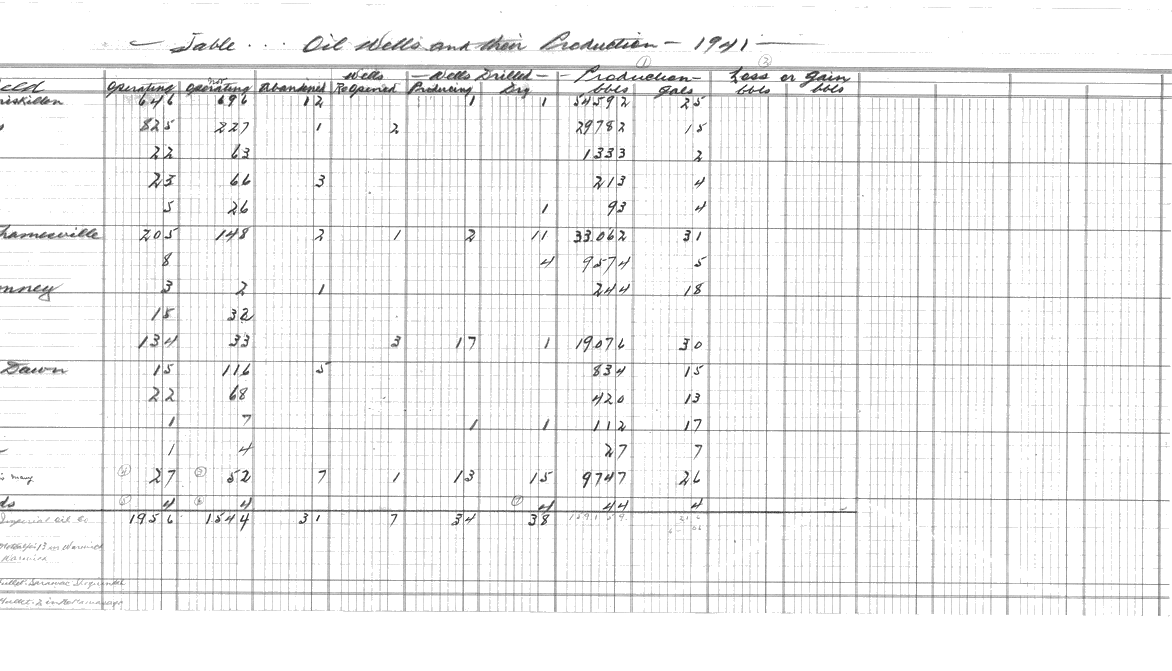 Table . . . Oil Wells and their Production - 1941
① ②
Wells - Wells Drilled - - Production - Loss or Gain
eld Operating not Operating Abandoned ReOpened Producing Dry bbls gals bbls bbls
niskillen 646 696 12 1 1 54592 25
s 825 227 1 2 29782 15
22 63 1333 2
23 66 3 213 4
5 26 1 93 4
hamesville 205 148 2 1 2 11 33.062 31
8 4 9574 5
mney 3 2 1 244 18
15 32
134 33 3 17 1 19076 30
Dawn 15 116 5 834 15
22 68 420 13
1 7 1 1 112 17
1 4 27 7
27 52 7 1 13 15 9747 26
ds 4 4 4 44 4
Imperial Oil Co 1956 1544 31 7 34 38
13 in Warwick
Warwick